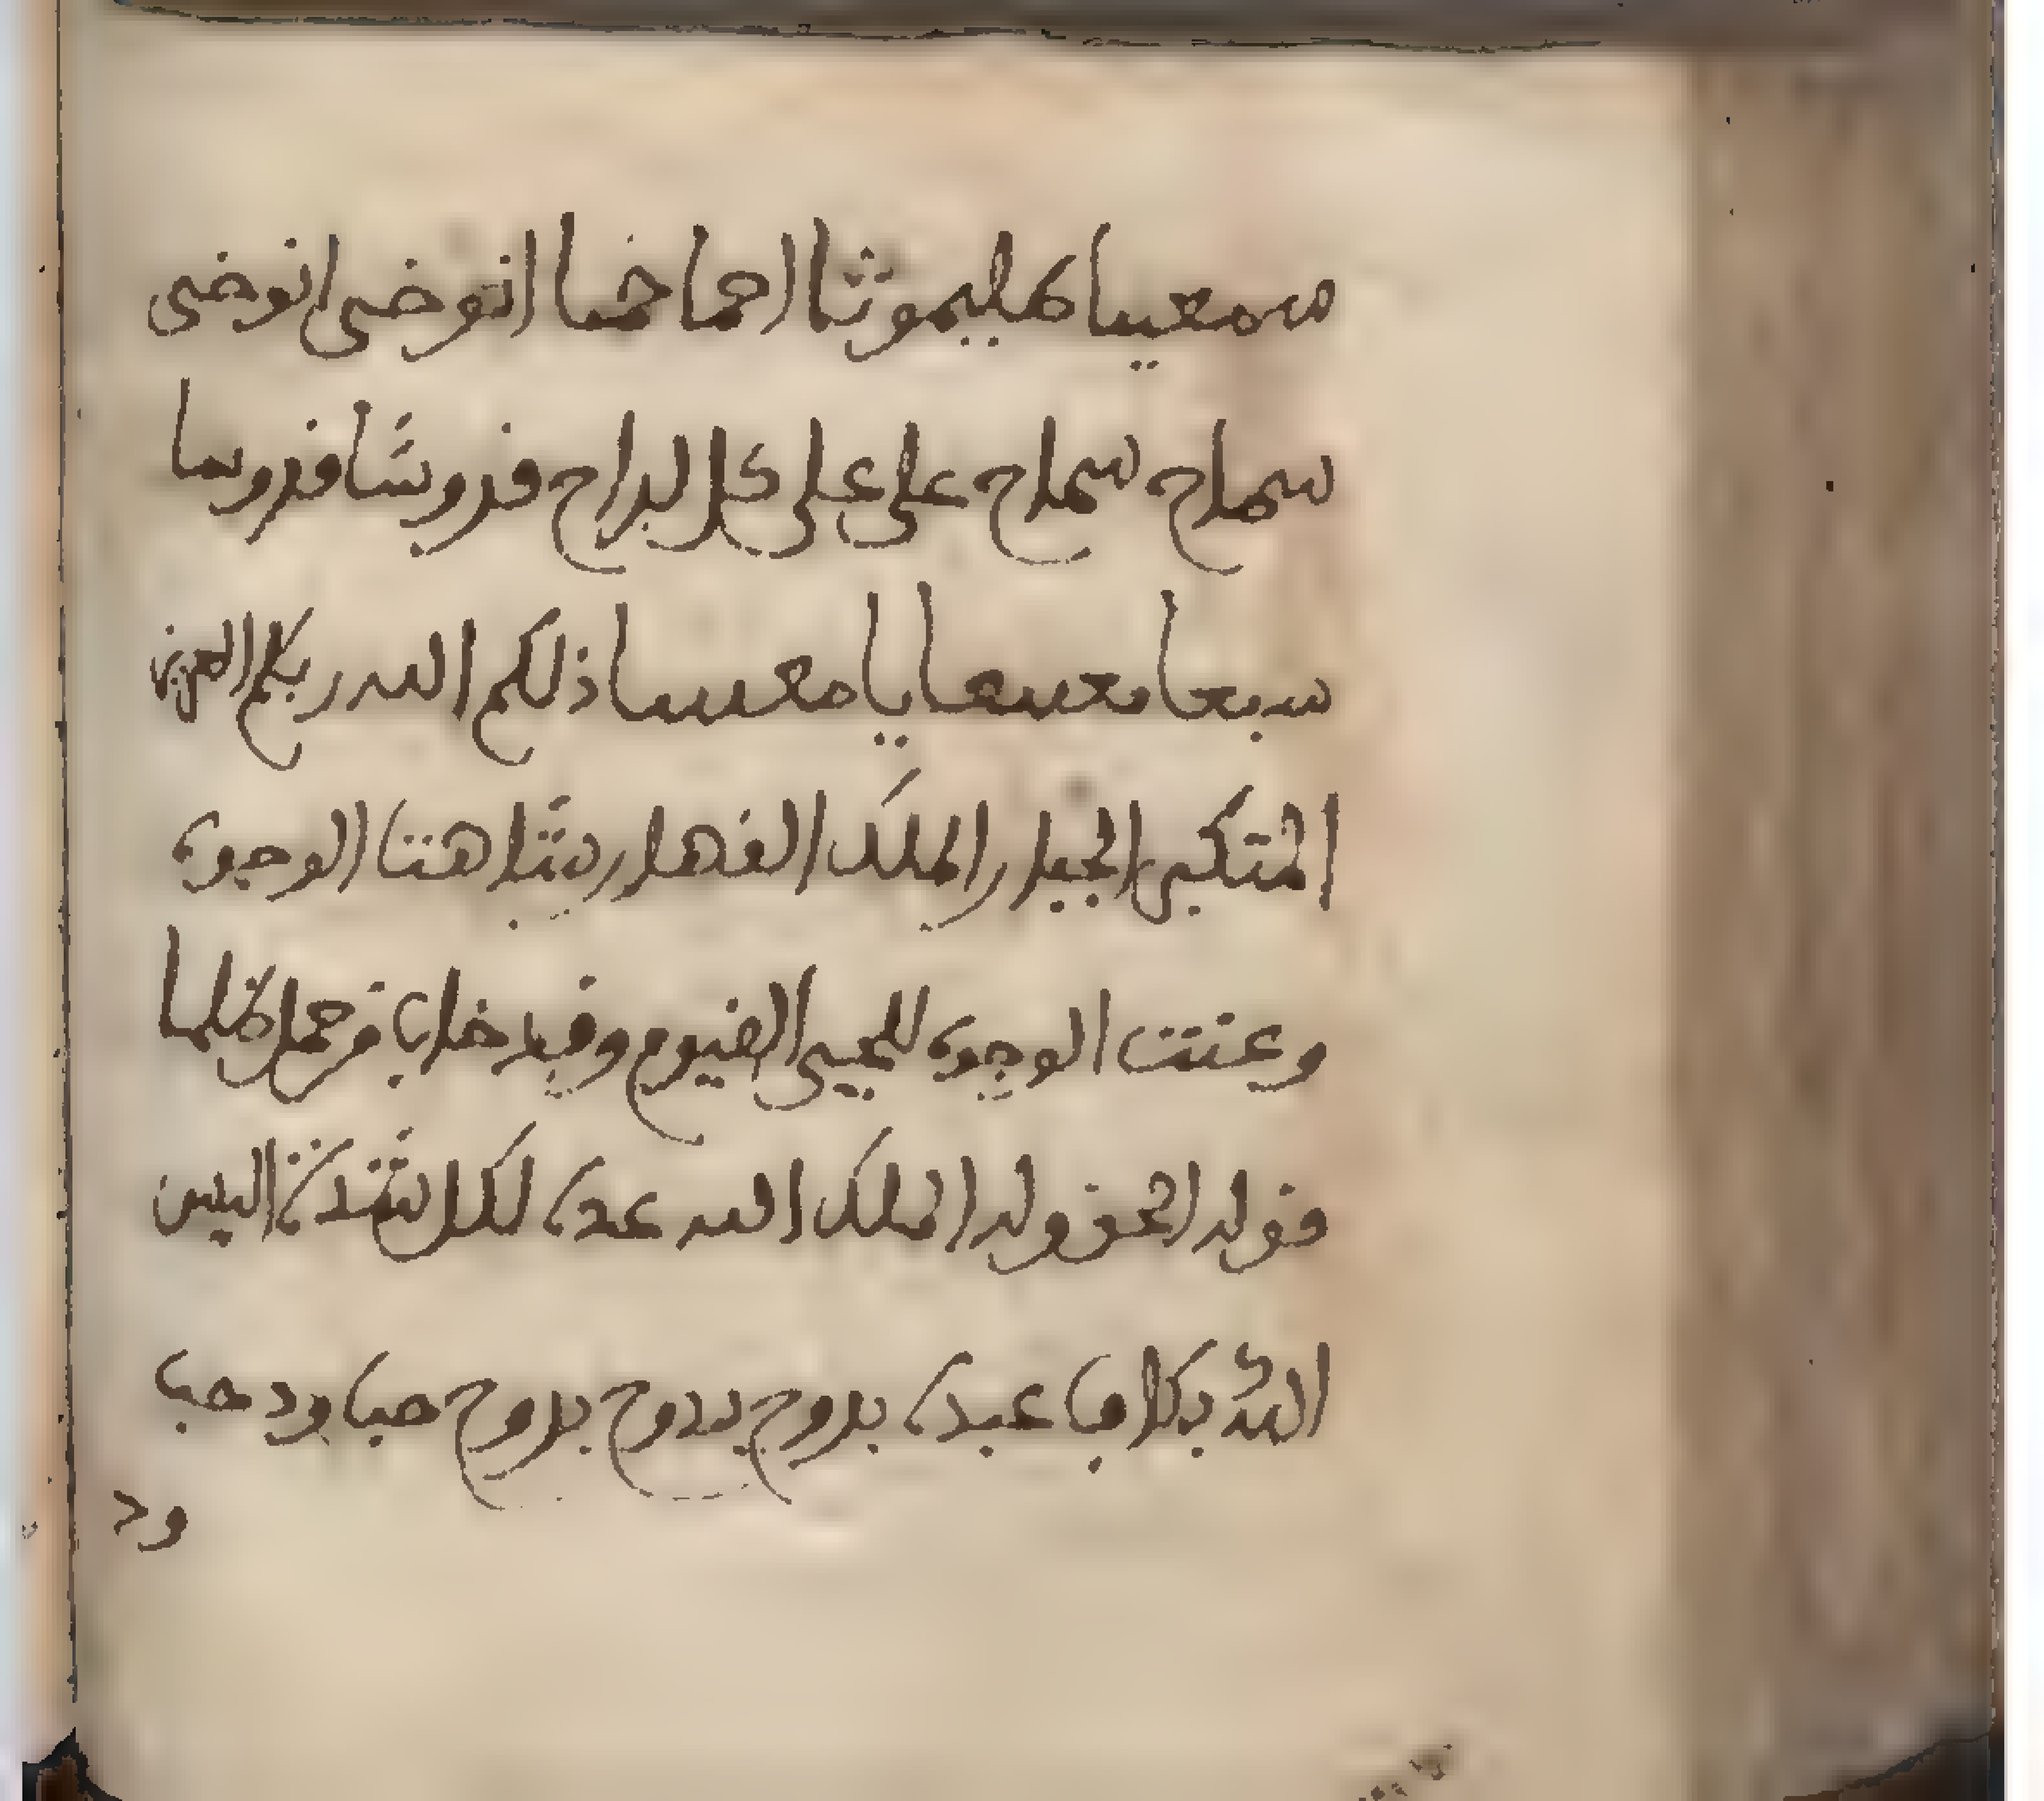 سمعيا هليموثا احما خما انوخى انوخى
سماح سماح على على كل براح فدروشا فدروسا
سبعا معسعا يا معسا ذلكم الله ربكم العزيز
المتكبر الجبار الملك القهار شاهتا الوجوه
وعنتت الوجوه للحيى القيوم وقد خاب من حمل ظلما
قوله الحق وله الملك الله عدة لكل شدة اليس
الله بكاف عبده بدوح بدوح بدوح حبا ود حبا
ود